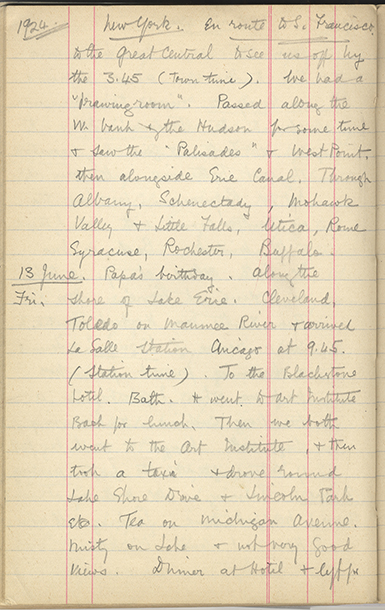 1924. New York. En route to S. Francisco.
to the Great Central to see us off by
the 3.45 (Town time). We had a
"Drawingroom". Passed along the
W. bank of the Hudson for some time
& saw the "Palisades" & West Point,
then alongside Erie Canal. Through
Albany, Schenectady, Mohawk
Valley & Little Falls, Utica, Rome
Syracuse, Rochester, Buffalo.
13 June. Papa's birthday. Along the
Fri. shore of Lake Erie. Cleveland,
Toledo on Maumee River & arrived
La Salle Station Chicago at 9.45.
(Station time). To the Blackstone
Hotel. Bath. H went to Art Institute
Back for lunch. Then we both
went to the Art Institute, & then
took a taxi & drove round
Lake Shore Drive & Lincoln Park
etc. Tea on Michigan Avenue.
Misty on Lake & not very good
views. Dinner at Hotel &